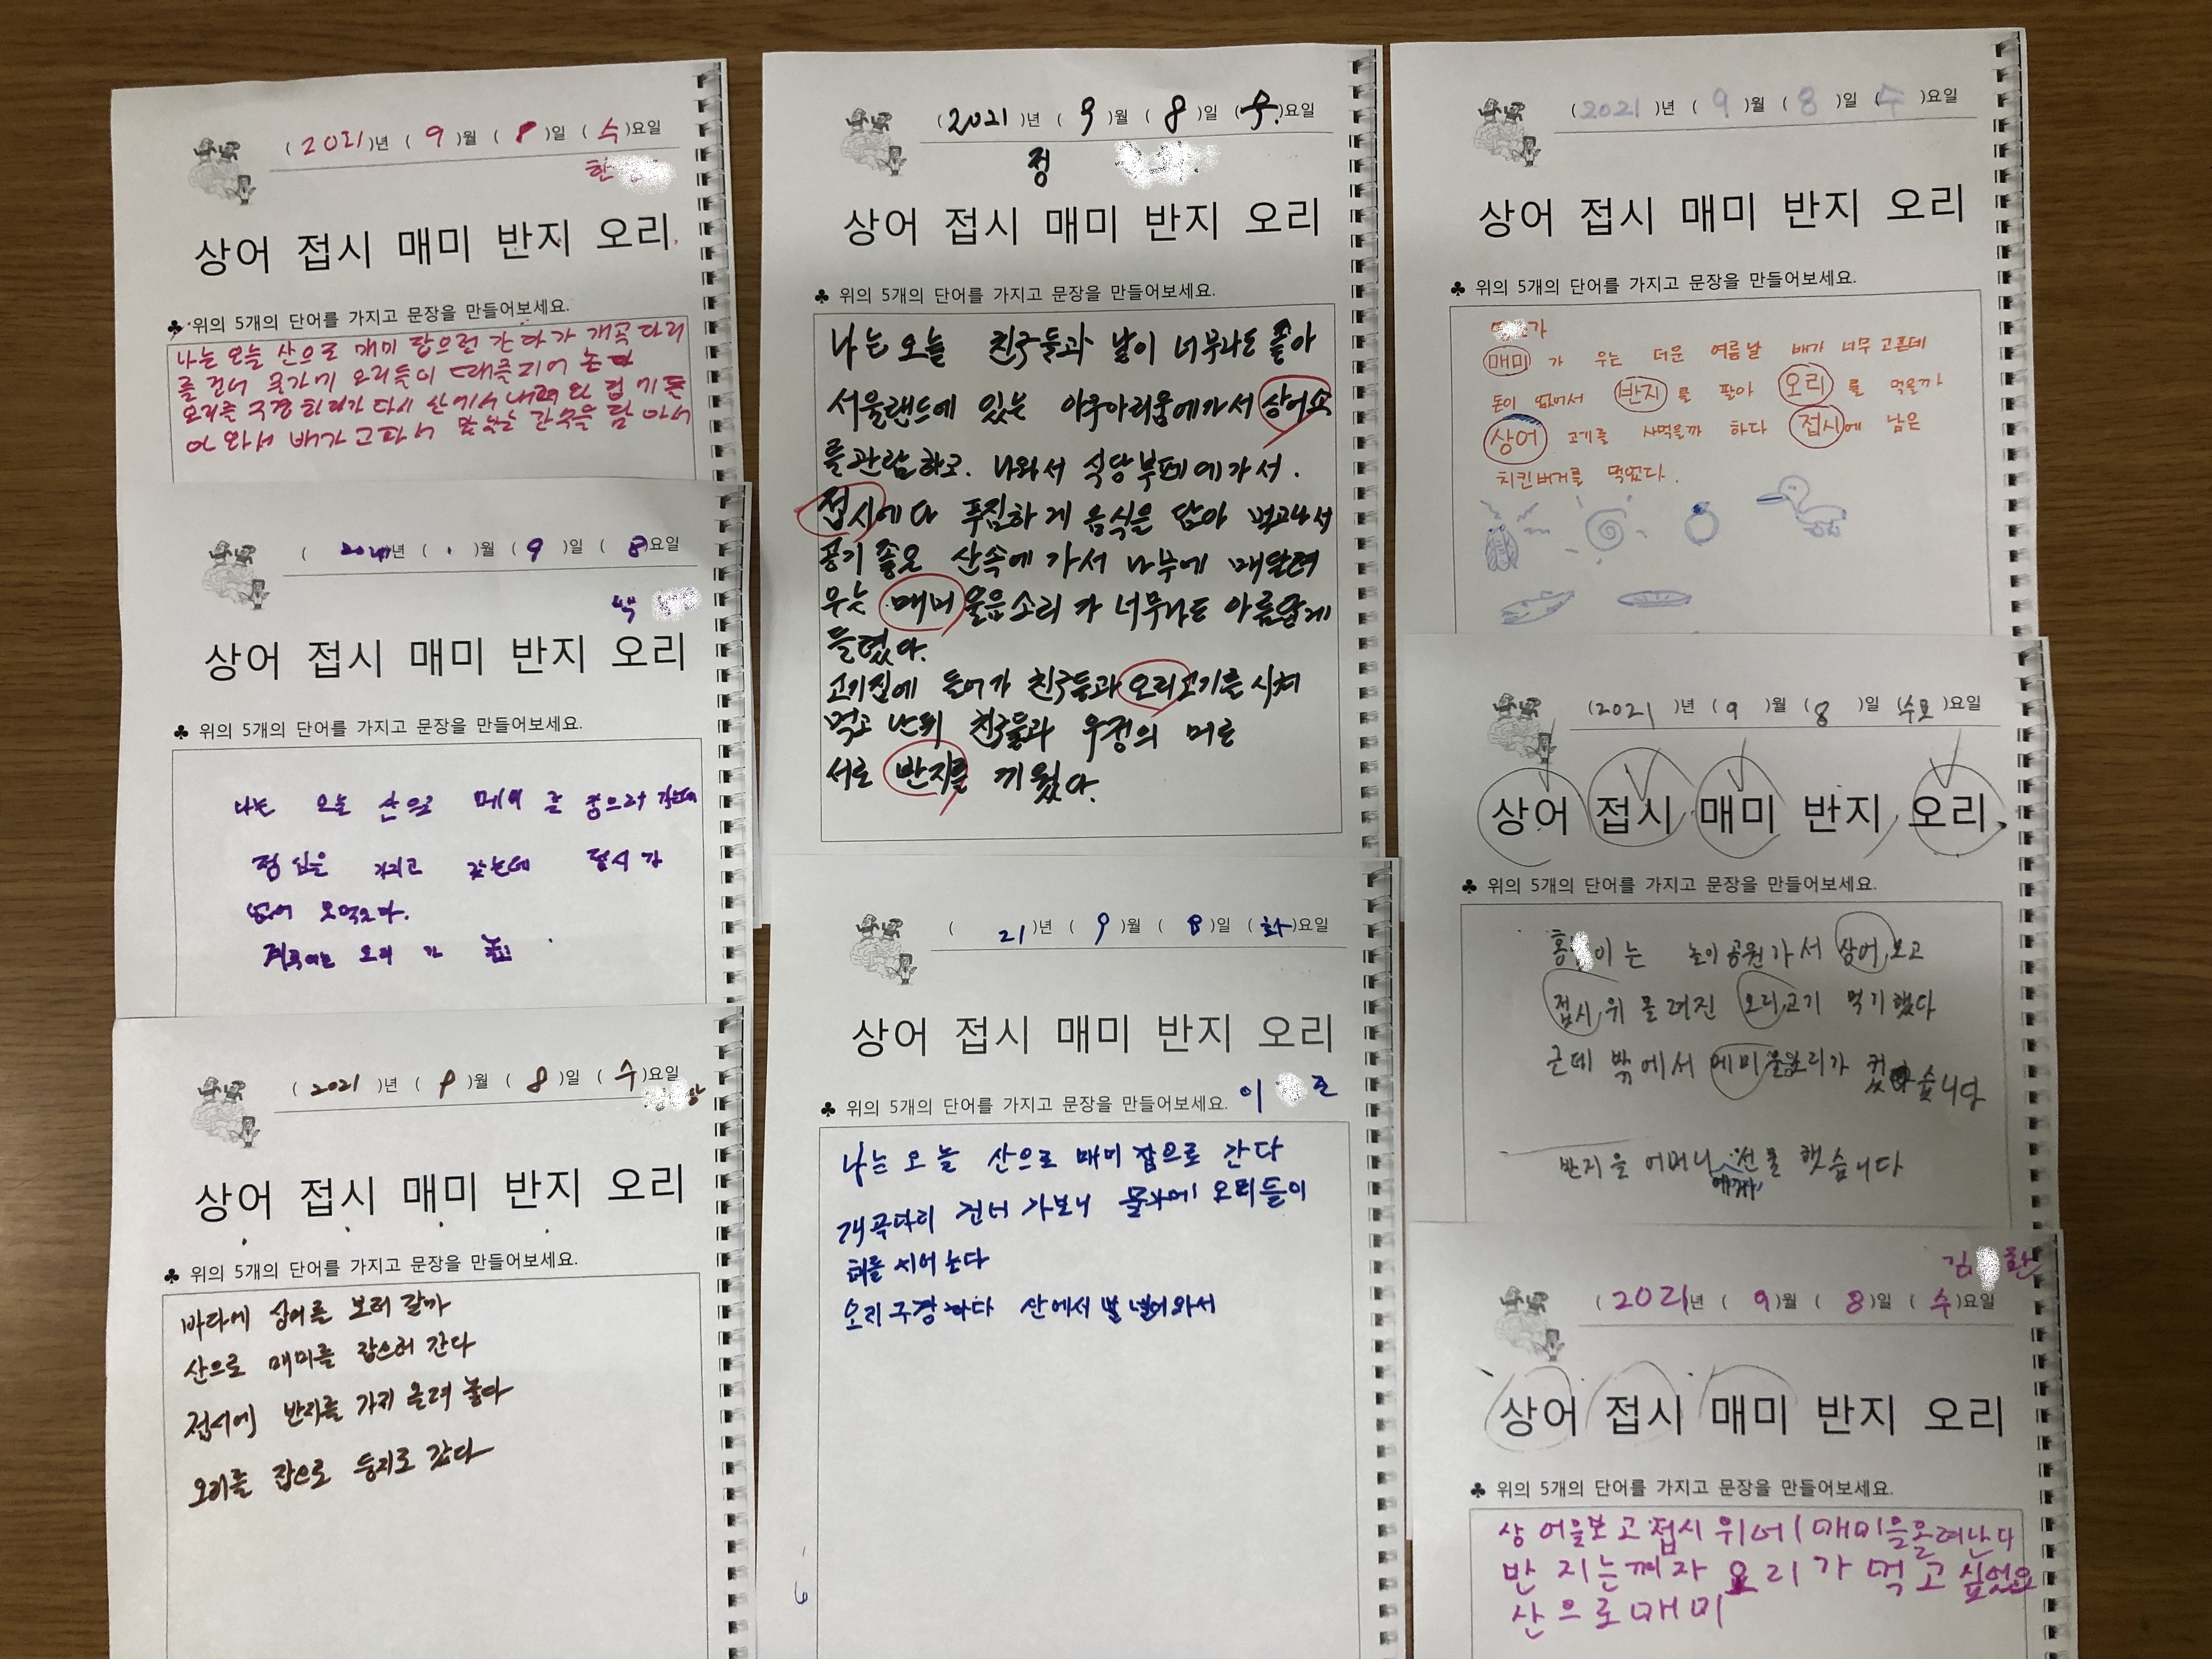 (2021)년 (9)월 (8)일 (수)요일
한
상어 접시 매미 반지 오리
♣ 위의 5개의 단어를 가지고 문장을 만들어보세요.
나는 오늘 산으로 매미 답으런 간다가 개곡다리
를 건너 물가에 오리들이 때를지어 논다
오리를 구경 하다가 다시 산에서 내려와 집에
와서 배가고파서 맛있는 국수를 담아서
( )년 ( )월 (9)일 (8)요일
박
상어 접시 매미 반지 오리
♣ 위의 5개의 단어를 가지고 문장을 만들어보세요.
나는 오늘 산으로 메미 를
점심을 가지고 갔는데 접시가
없어 못먹었다.
오리 가
(2021)년 (9)월 (8)일 (수)요일
상어 접시 매미 반지 오리
♣ 위의 5개의 단어를 가지고 문장을 만들어보세요.
바다에 상어를 보러 갈까
산으로 매미를 잡으러 간다
접시에 반지를 가지 올려 놓다
오리를 잡으로 둥지로 갔다
(2021)년 (9)월 (8)일 (수)요일
정
상어 접시 매미 반지 오리
♣ 위의 5개의 단어를 가지고 문장을 만들어보세요.
나는 오늘 친구들과 날이 너무나도 좋아
서울랜드에 있는 아쿠아리움에가서 상어쇼
를관람하고. 나와서 식당부페에가서.
접시에다 푸짐하게 음식을 담아 먹고나서
공기 좋은 산속에 가서 나무에 매달려
우는 매미 울음소리가 너무나도 아름답게
들렸다.
고기집에 들어가 친구들과 오리고기를 시켜
먹고 난뒤 친구들과 우정의 머로
서로 반지를 끼웠다.
(21)년 (9)월 (8)일 (화)요일
상어 접시 매미 반지 오리
♣ 위의 5개의 단어를 가지고 문장을 만들어보세요. 이 로
나는 오늘 산으로 매미 잡으로 간다
개곡다리 건너 가보니 물가에 오리들이
논다
오리구경하다 산에서
(2021)년 (9)월 (8)일 (수)요일
상어 접시 매미 반지 오리
♣ 위의 5개의 단어를 가지고 문장을 만들어보세요.
가
매미 가 우는 더운 여름날 배가 너무 고픈데
돈이 없어서 반지 를 팔아 오리 를 먹을까
상어 고기를 사먹을까 하다 접시에 남은
치킨버거를 먹었다.
(2021)년 (9)월 (8)일 (수요)요일
상어 접시 매미 반지 오리
♣ 위의 5개의 단어를 가지고 문장을 만들어보세요.
홍 이는 놀이공원가서 상어 보고
접시 위 올려진 오리고기 먹기했다
근데 밖에서 메미울음소리가 컸습니다
반지을 어머니에게 선물 했습니다
김 환
(2021)년 (9)월 (8)일 (수)요일
상어 접시 매미 반지 오리
♣ 위의 5개의 단어를 가지고 문장을 만들어보세요.
상어을보고접시위에매미을올려난다
반지는끼자 오리가먹고싶었요
산으로매미